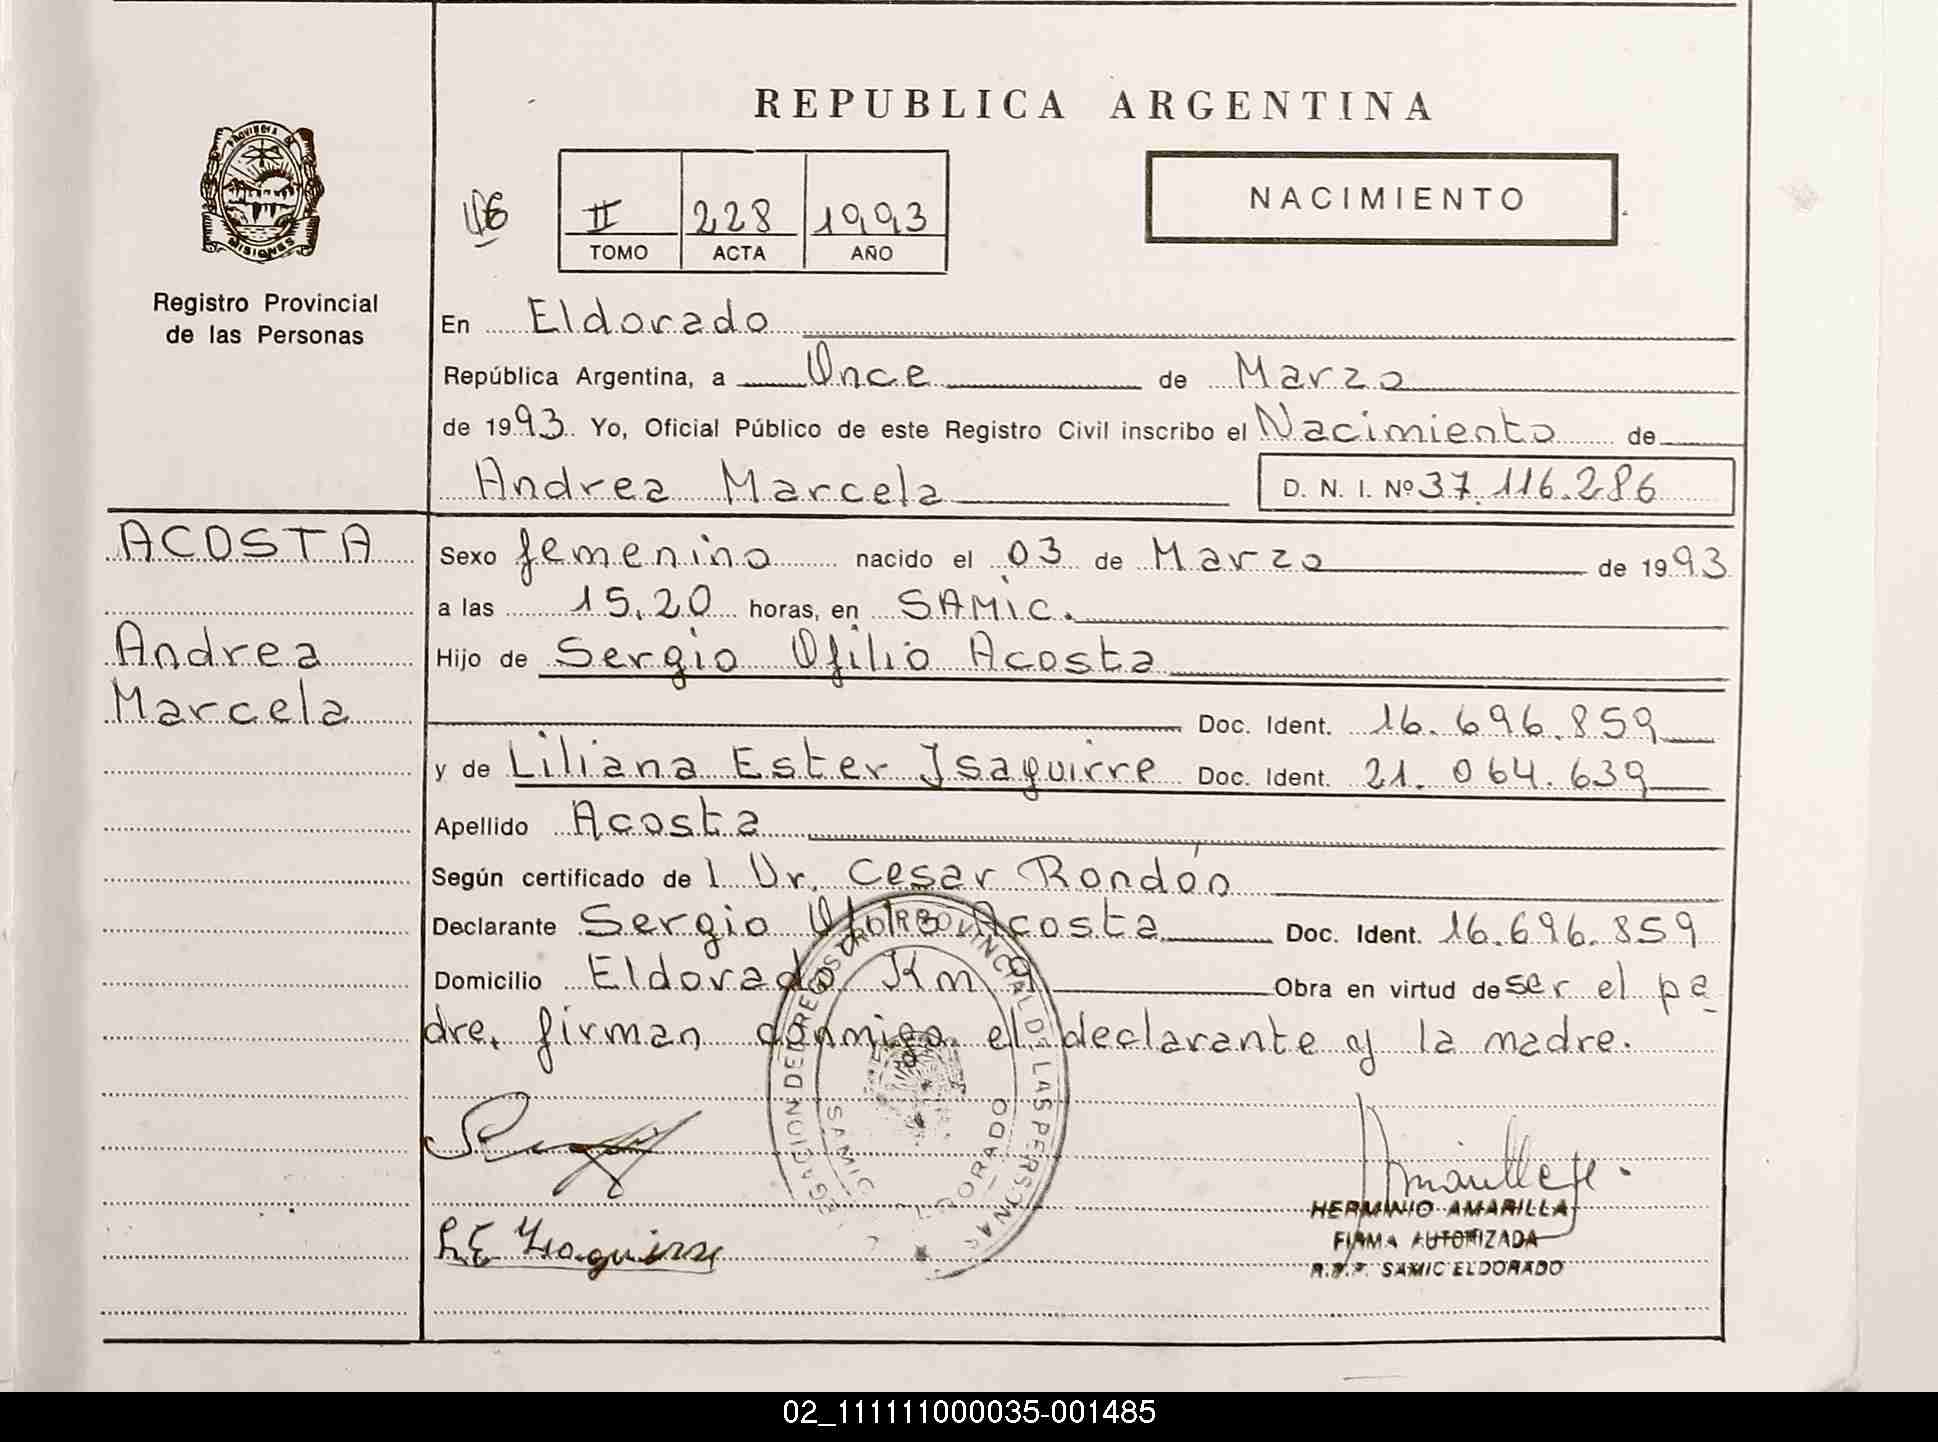 REPUBLICA ARGENTINA
PROVINCIA DE
MISIONES
Registro Provincial
de las Personas
II 228 1993
TOMO ACTA AÑO
NACIMIENTO
En Eldorado
República Argentina, a Once de Marzo
de 1993 Yo, Oficial Público de este Registro Civil inscribo el Nacimiento de
Andrea Marcela D. N. I. Nº 37.116.286
ACOSTA
Andrea
Marcela
Sexo femenino nacido el 03 de Marzo de 1993
a las 15.20 horas, en SAMIC.
Hijo de Sergio Ofilio Acosta
Doc. Ident. 16.696.859
y de Liliana Ester Isaguirre Doc. Ident. 21.064.639
Apellido Acosta
Según certificado de l Dr. Cesar Rondón
Declarante Sergio Ofilio Acosta Doc. Ident. 16.696.859
Domicilio Eldorado Km 9 Obra en virtud de ser el pa
dre. firman conmigo el declarante y la madre.
DELEGACION DE REGISTRO PROVINCIAL DE LAS PERSONAS
SAMIC ELDORADO
L E Isaguirre
HERMINIO AMARILLA
FIRMA AUTORIZADA
R.P.P. SAMIC ELDORADO
02_111111000035-001485